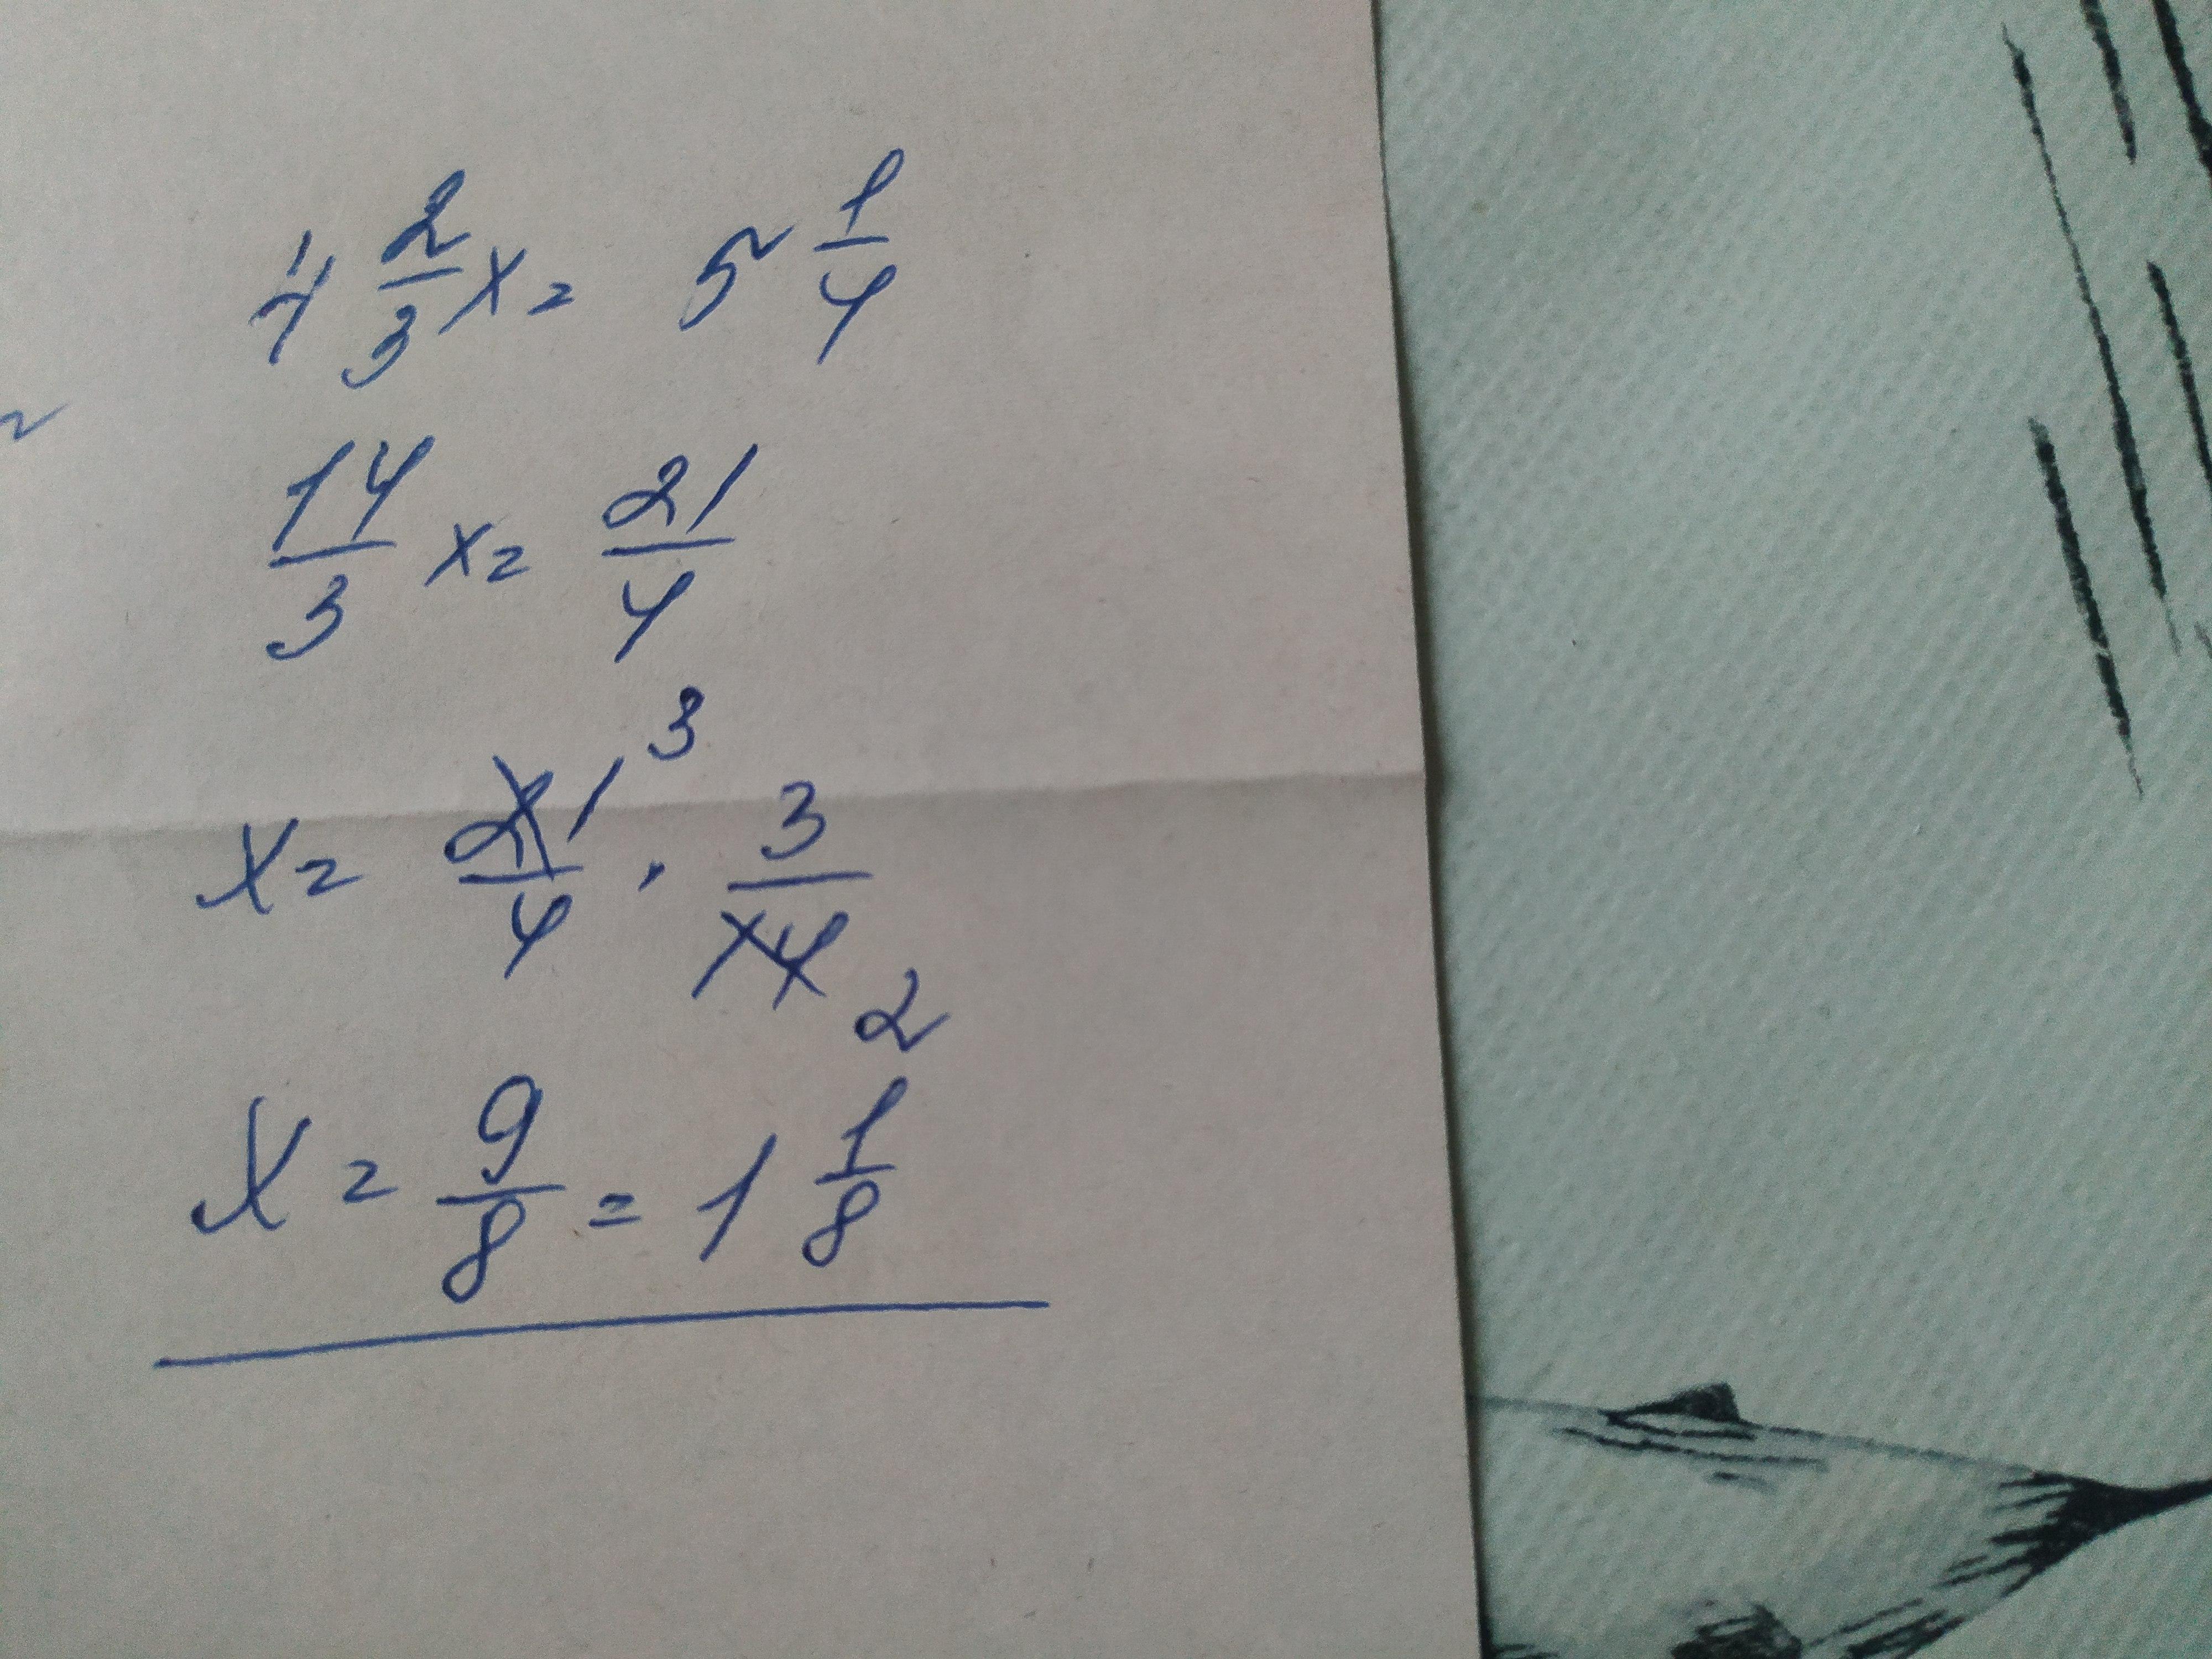 4 2/3 x = 5 1/4
14/3 x = 21/4
x = 21/4 3 · 3/14 2
x = 9/8 = 1 1/8